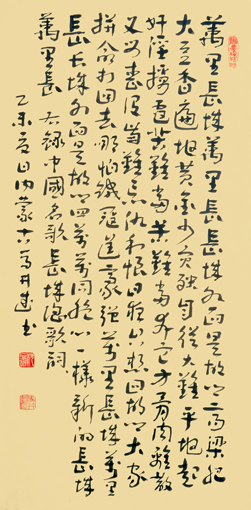 萬里長城萬里長長城外面是故鄉高梁肥
大豆香遍地黃金少災殃自從大難平地起
奸淫擄掠苦難當苦難當奔它方骨肉離散
父母喪沒齒難忘仇和恨日夜只想回故鄉大家
拼命打回去哪怕賊虜逞豪強萬里長城萬里
長長城外面是故鄉四萬萬同胞心一樣新的長城
萬里長 右錄中國名歌長城謠歌詞
乙未夏日內蒙古馬井書